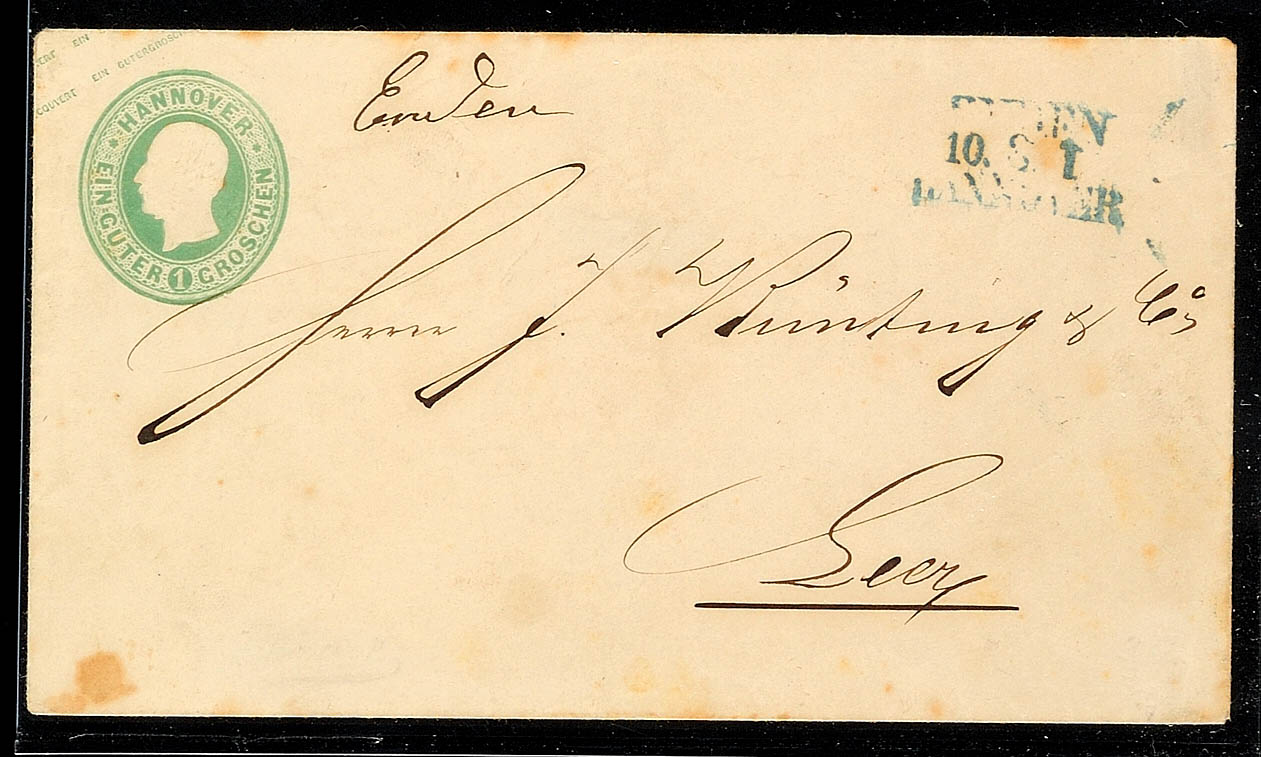 EIN
COUVERT EIN GUTERGROSCH
HANNOVER
EIN GUTER 1 GROSCHEN
Emden
EMDEN
10. 8. 1
HANNOVER
Herrn J. Bünting & Co
Leer